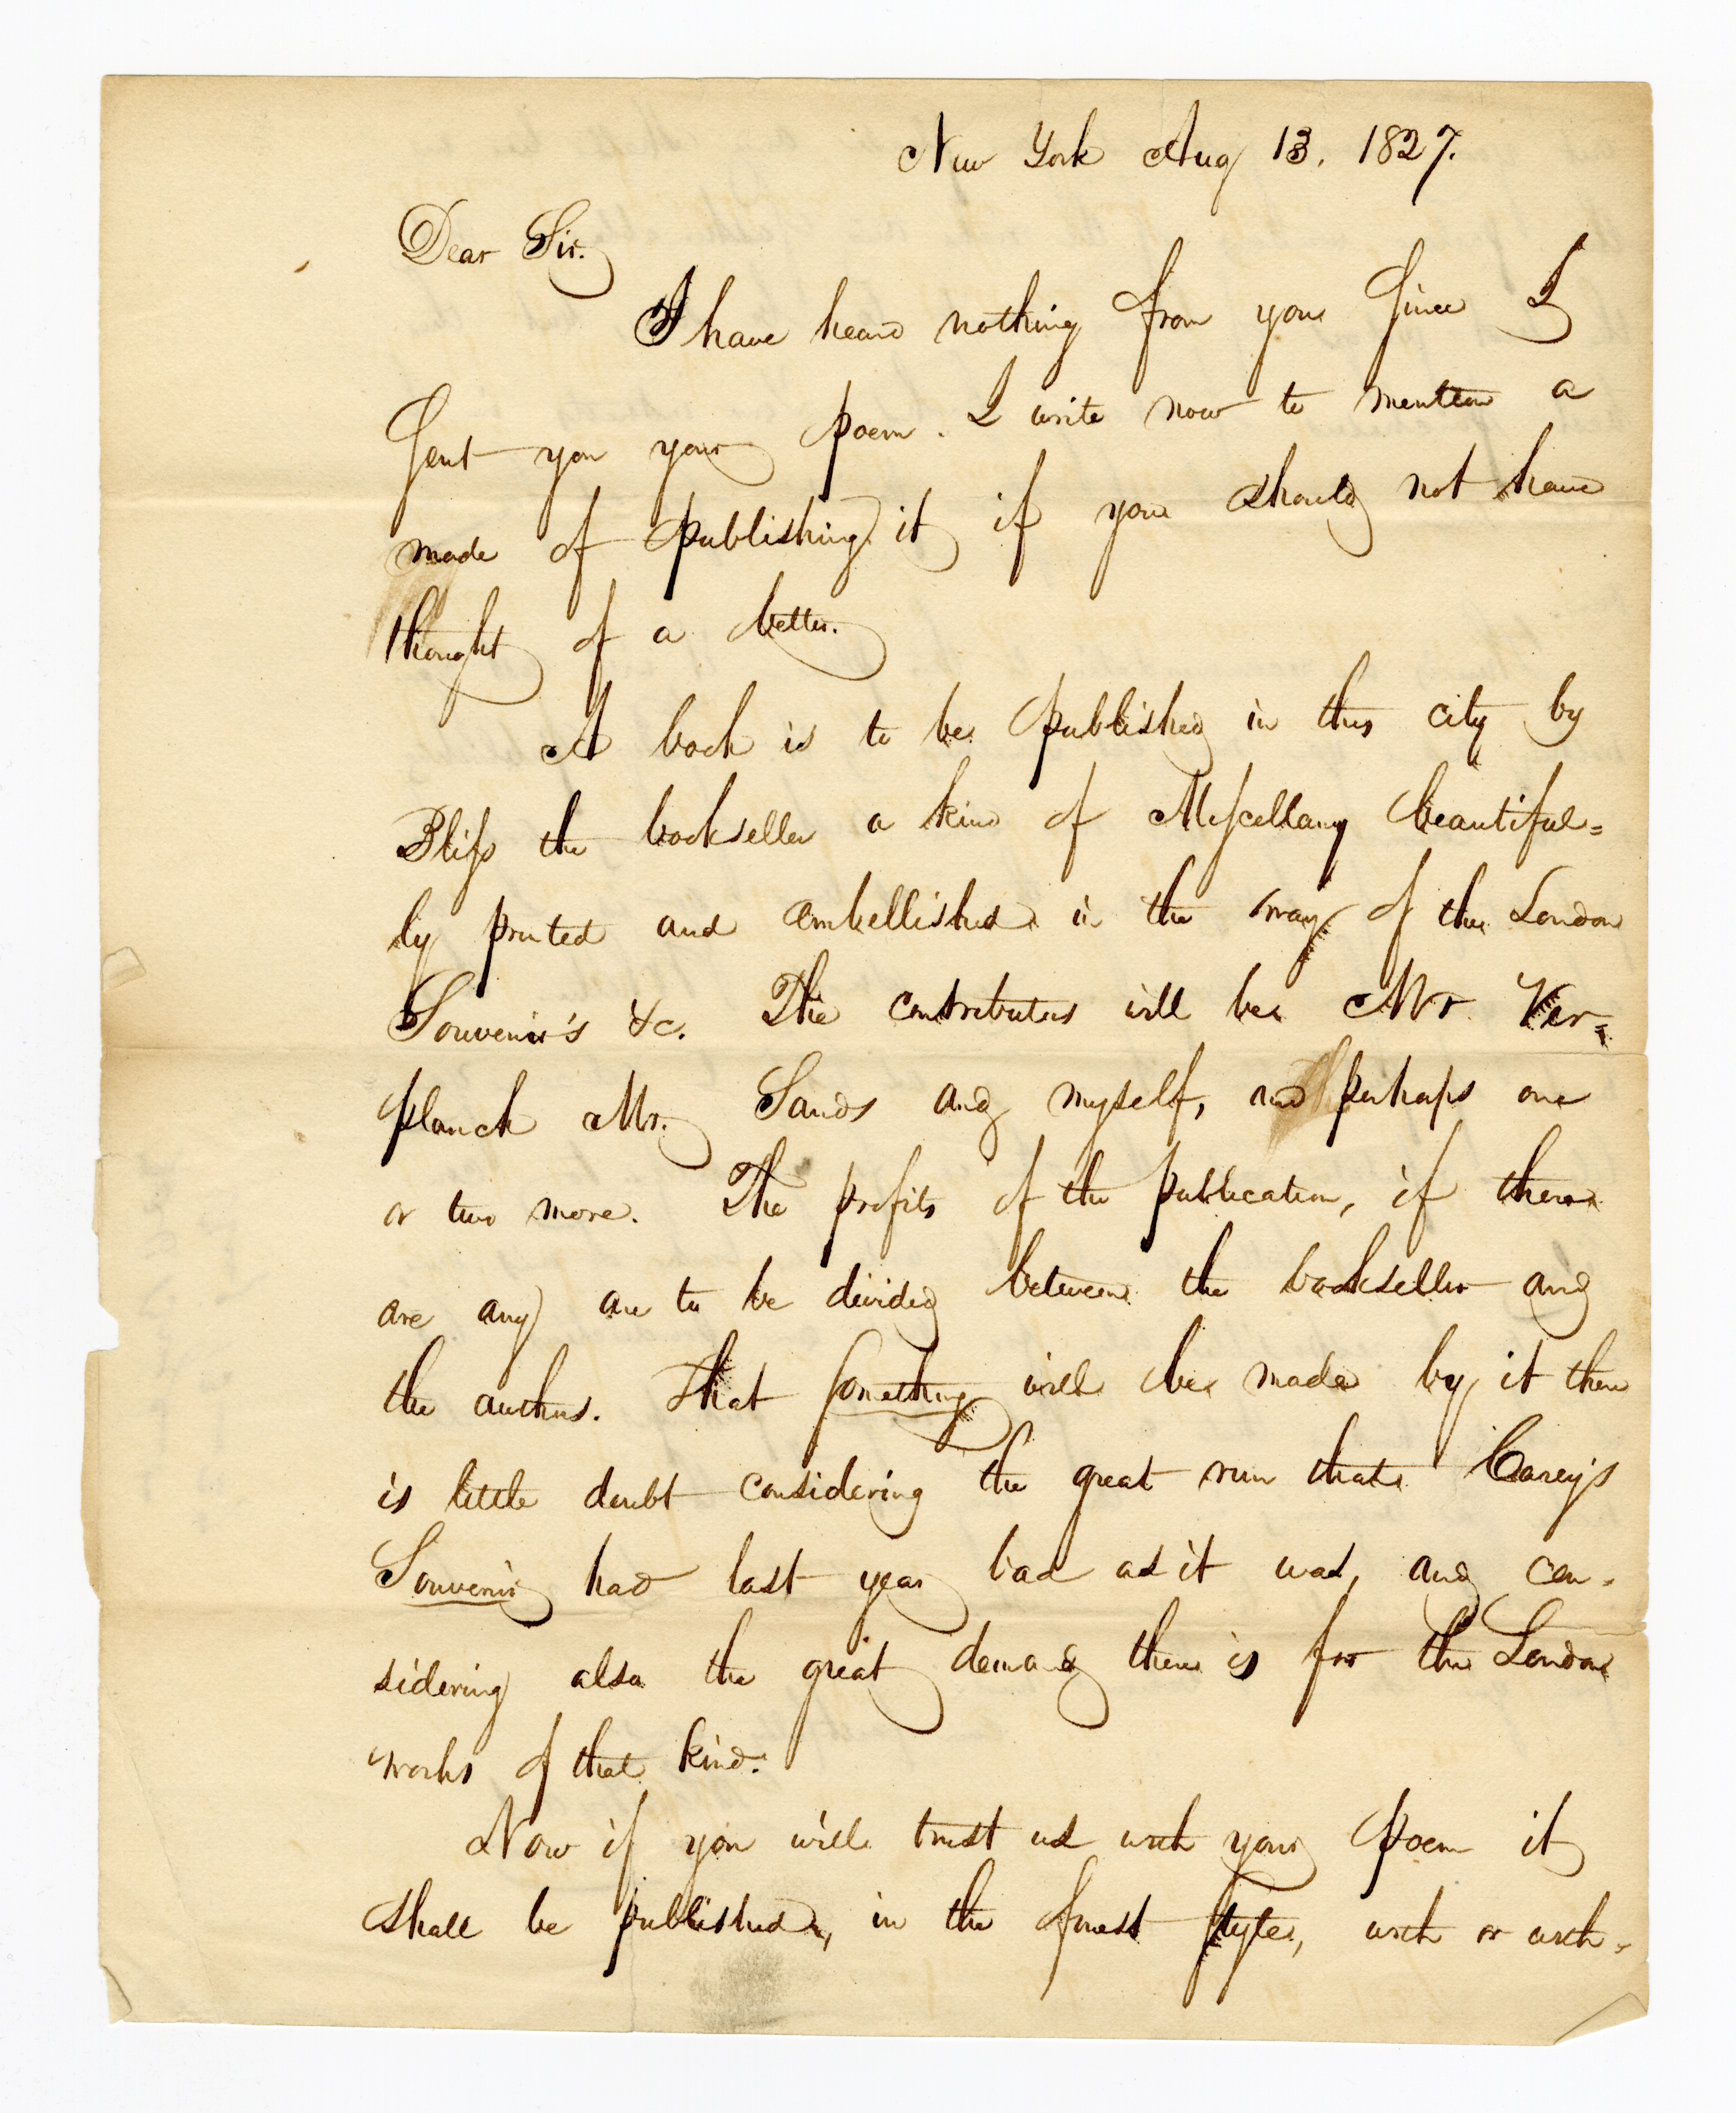 New York Aug 13. 1827.
Dear Sir.
I have heard nothing from you since I
sent you your poem. I write now to mention a
mode of publishing it if you should not have
thought of a better.
A book is to be published in this city by
Bliss the bookseller a kind of Miscellany beautiful=
ly printed and embellished in the way of the London
Souvenir's &c. The contributors will be Mr. Ver=
planck Mr. Sands and myself, and perhaps one
or two more. The profits of the publication, if there
are any are to be divided between the bookseller and
the authors. That something will be made by it there
is little doubt considering the great run that Carey's
Souvenir had last year bad as it was, and con-
sidering also the great demand there is for the London
works of that kind.
Now if you will trust us with your poem it
shall be published, in the finest style, with or with-